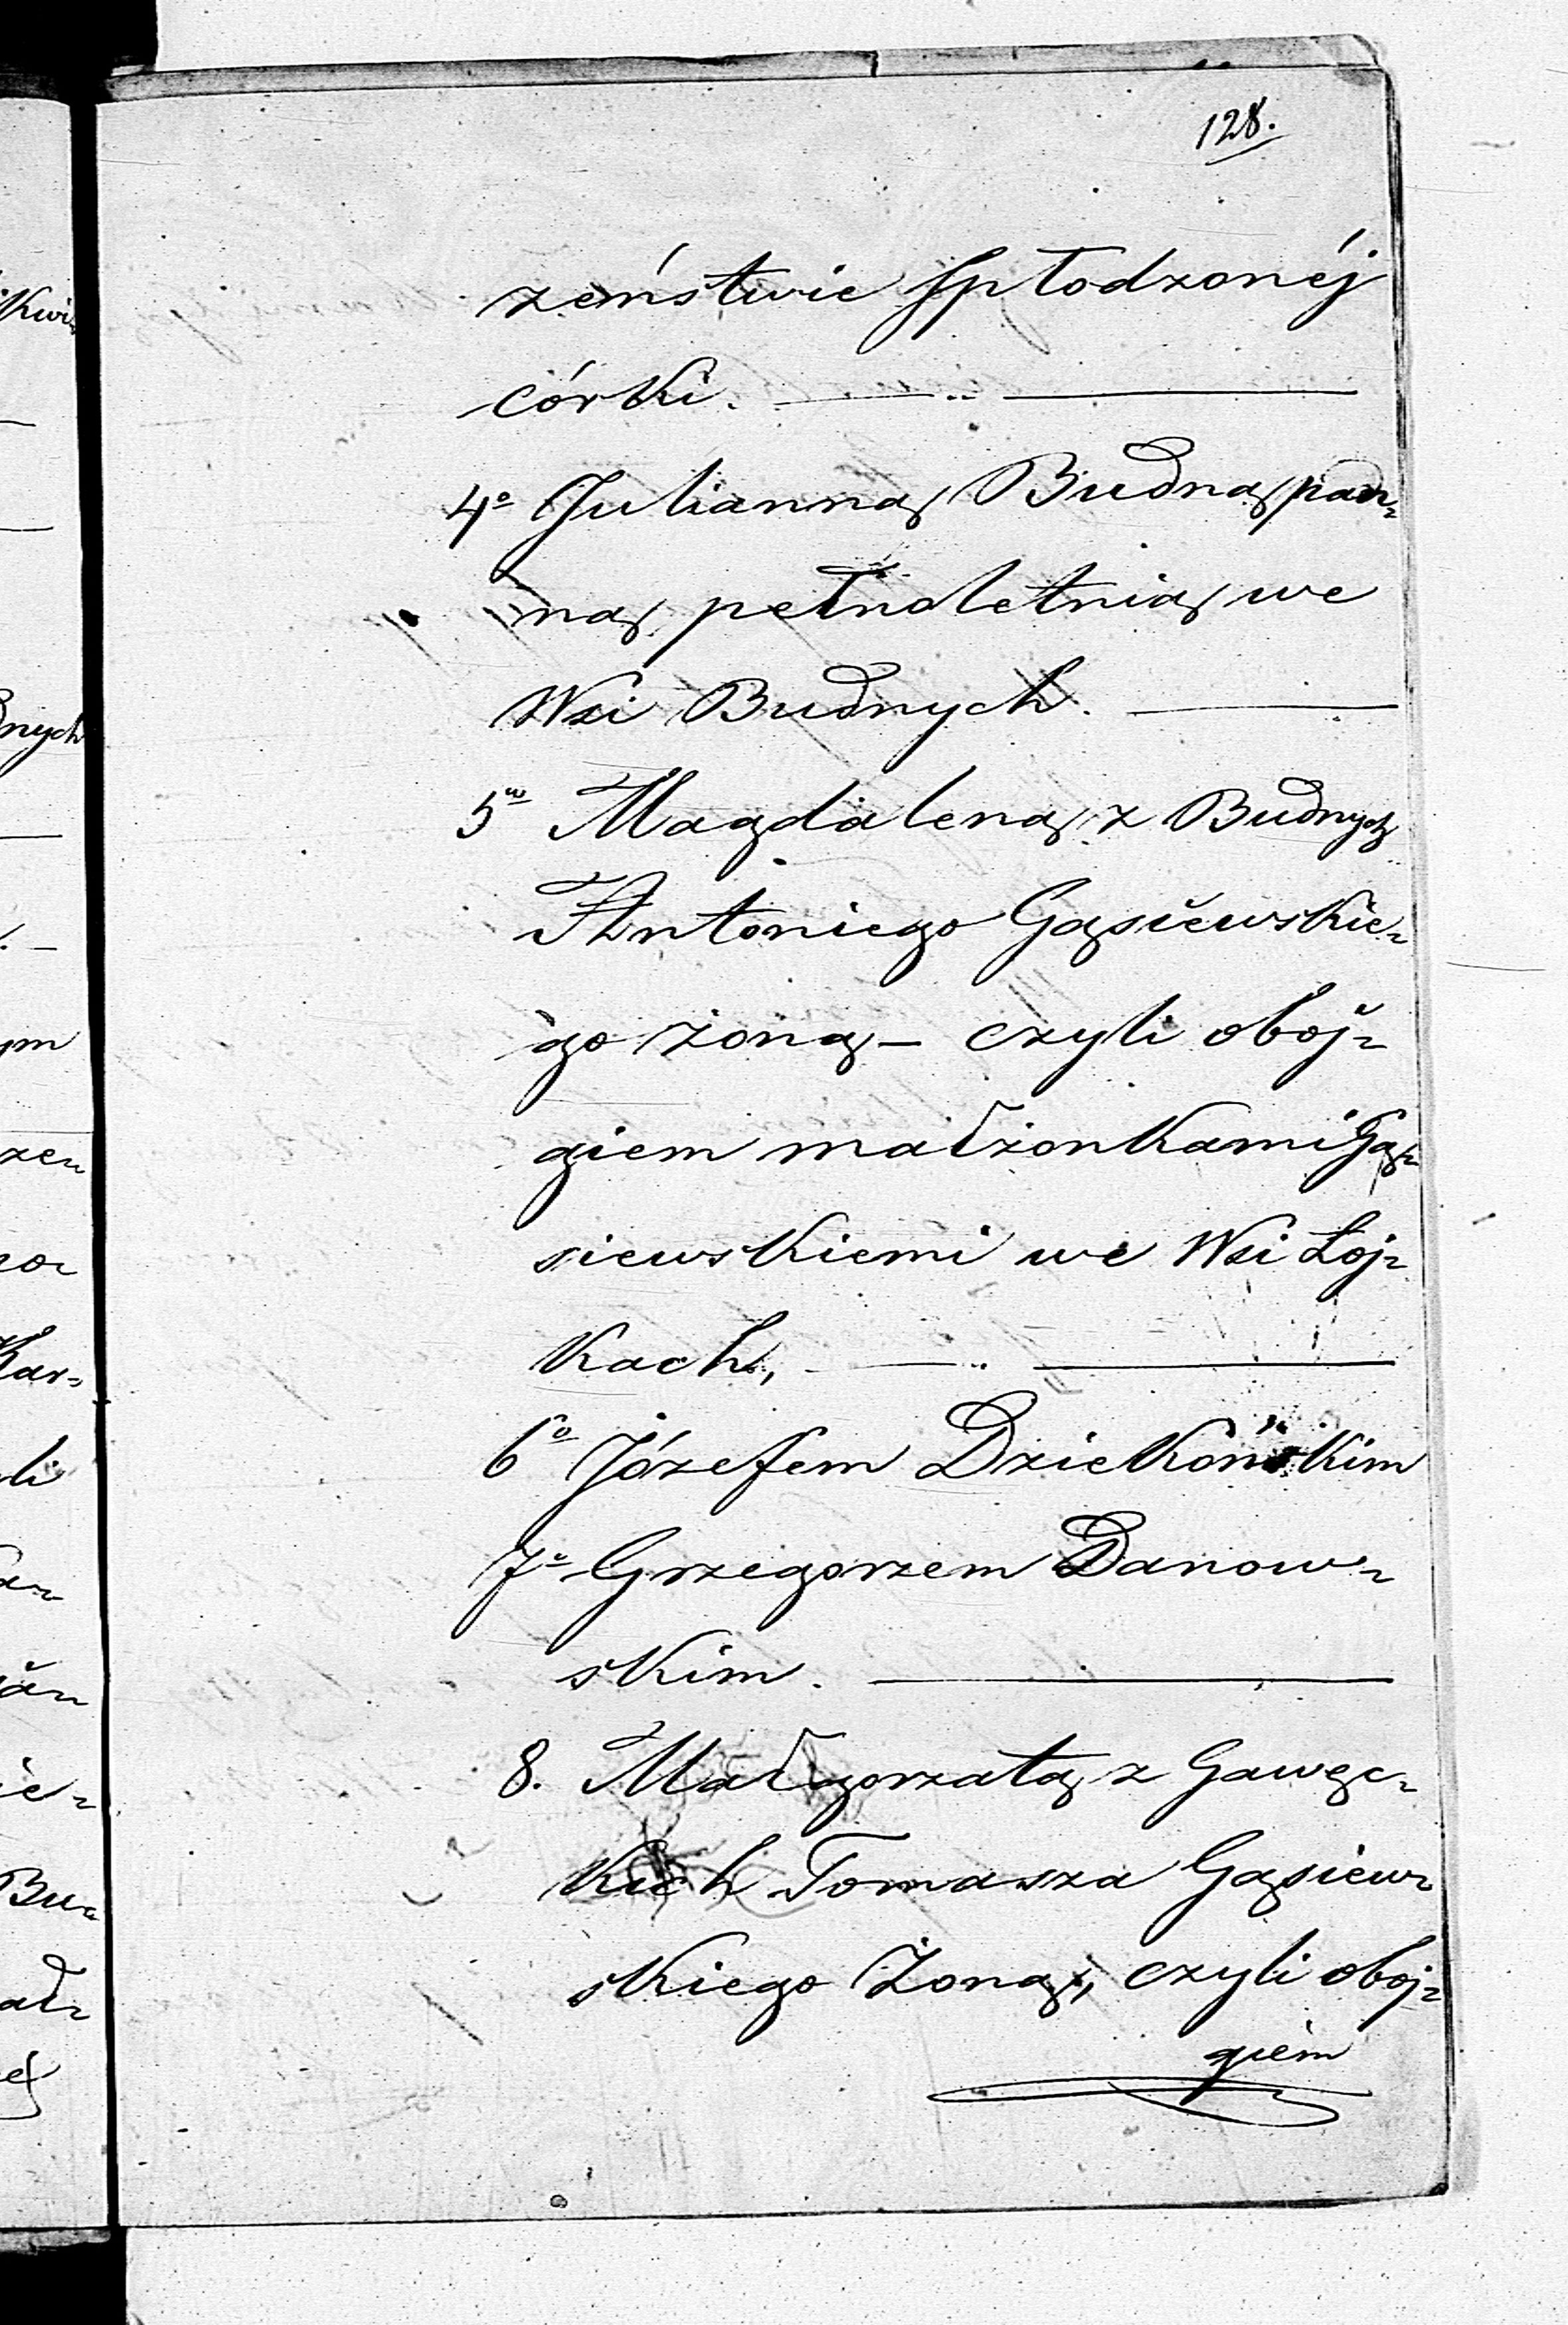 128.
żeństwie spłodzonéj
córki.
4o Julianną Budną pan-
ną pełnoletnią we
Wsi Budnych.
5o Magdaleną z Budnych
Antoniego Gąsiewskie-
go żoną – czyli oboj-
giem małżonkami Gą-
siewskiemi we Wsi Łoj-
kach,
6o Józefem Dziekońskim
7o Grzegorzem Danow-
skim.
8. Małgorzatą z Gawęc-
kich Tomasza Gąsiew-
skiego Żoną, czyli oboj-
giem